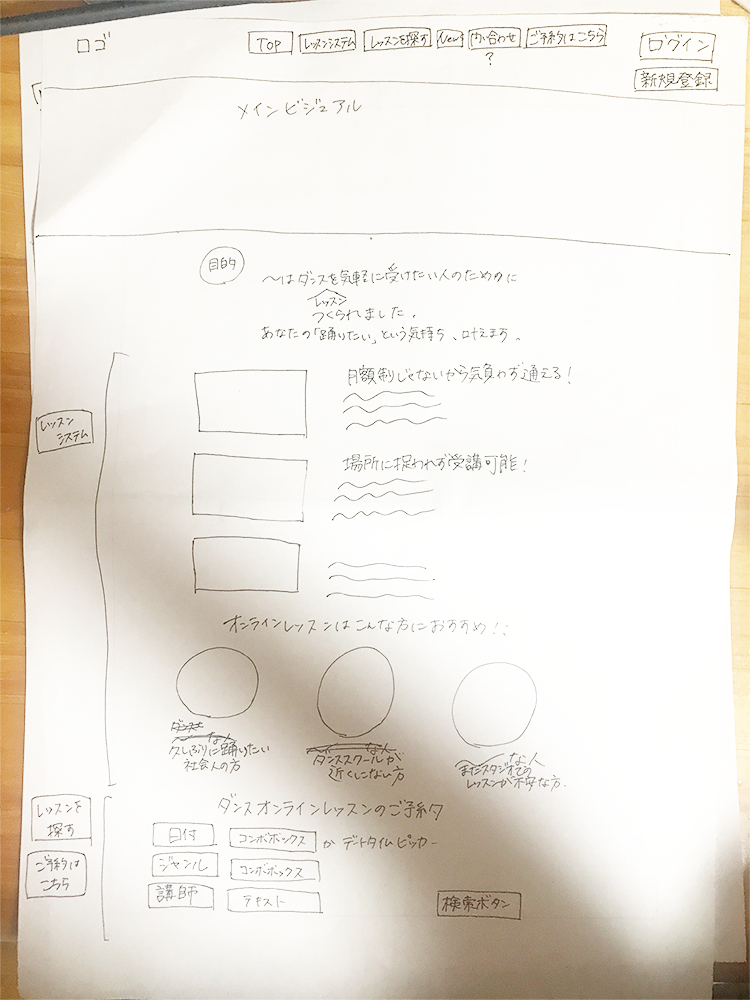 ロゴ
TOP
レッスンシステム
レッスンを探す
News
問い合わせ
?
ご予約はこちら
ログイン
新規登録
メインビジュアル
目的
〜はダンスを気軽に受けたい人のためのに
レッスン
つくられました。
あなたの「踊りたい」という気持ち、叶えます。
レッスン
システム
月額制じゃないから気負わず通える!
場所に捉われず受講可能!
オンラインレッスンはこんな方におすすめ!!
な人
久しぶりに踊りたい
社会人の方
な人
ダンススクールが
近くにない方
な人
まだスタジオでの
レッスンが不安な方.
レッスンを
探す
ご予約は
こちら
ダンスオンラインレッスンのご予約
日付
コンボボックス
か デートタイムピッカー
ジャンル
コンボボックス
講師
テキスト
検索ボタン